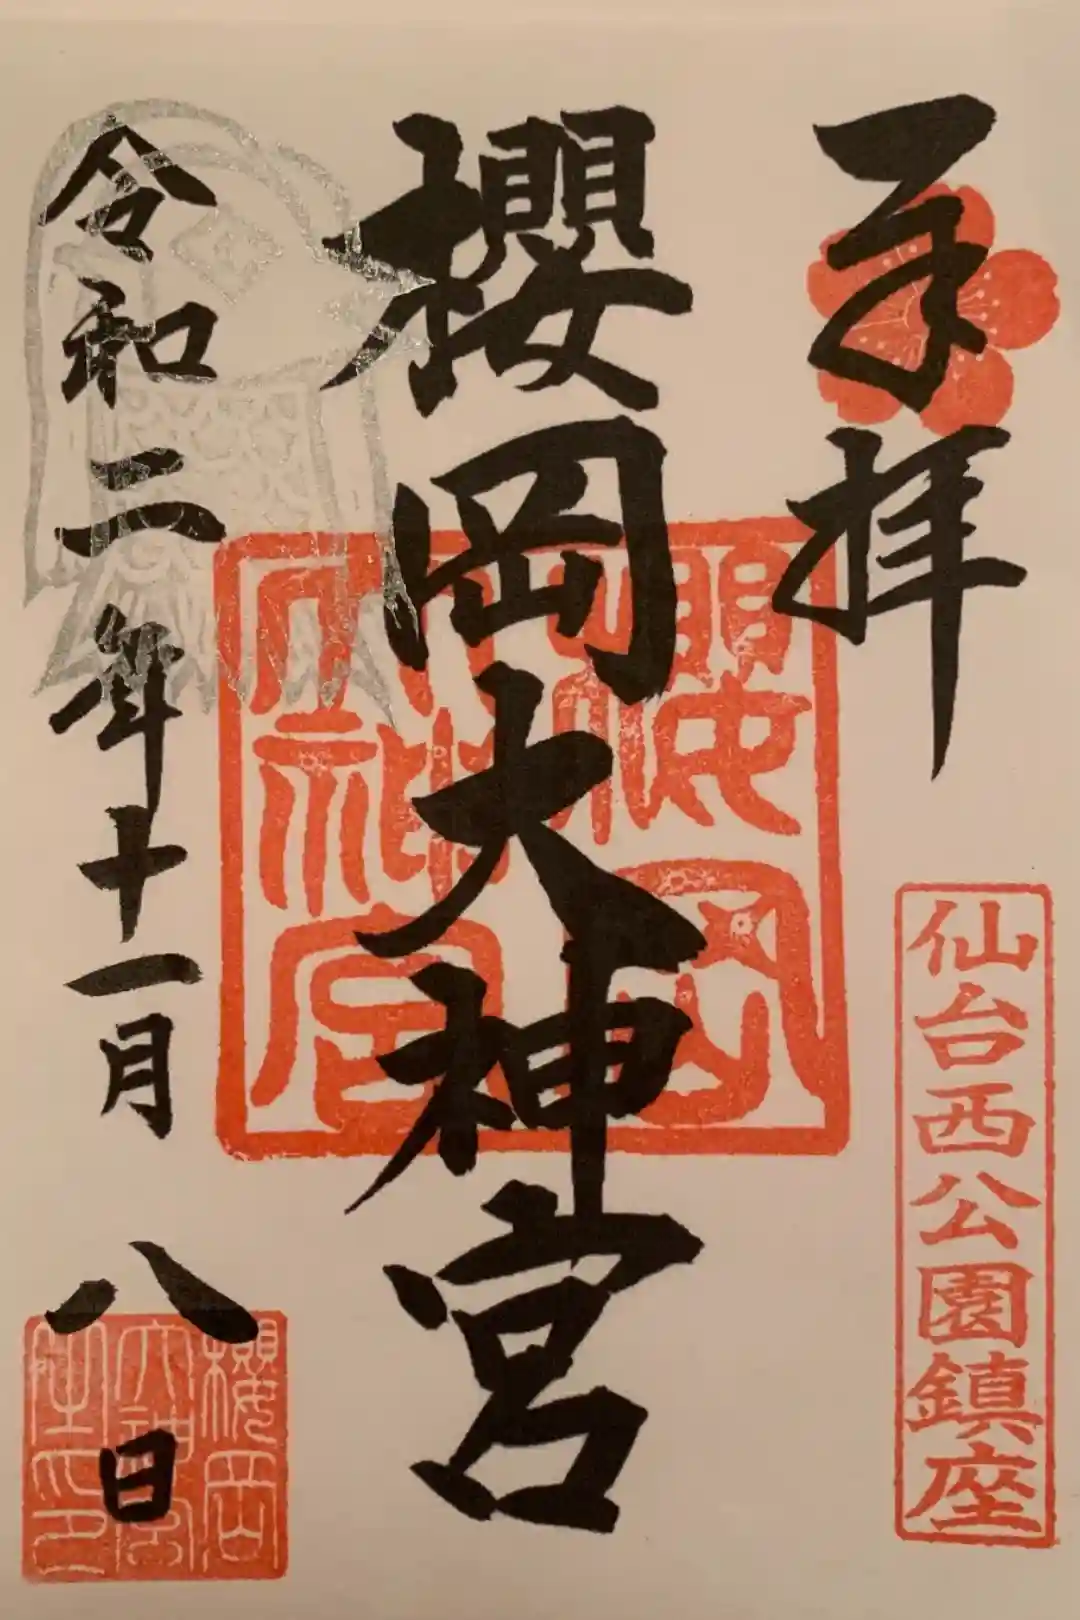 奉拝
仙台西公園鎮座
櫻岡大神宮
櫻岡
大神宮
令和二年十一月八日
櫻岡
大神宮